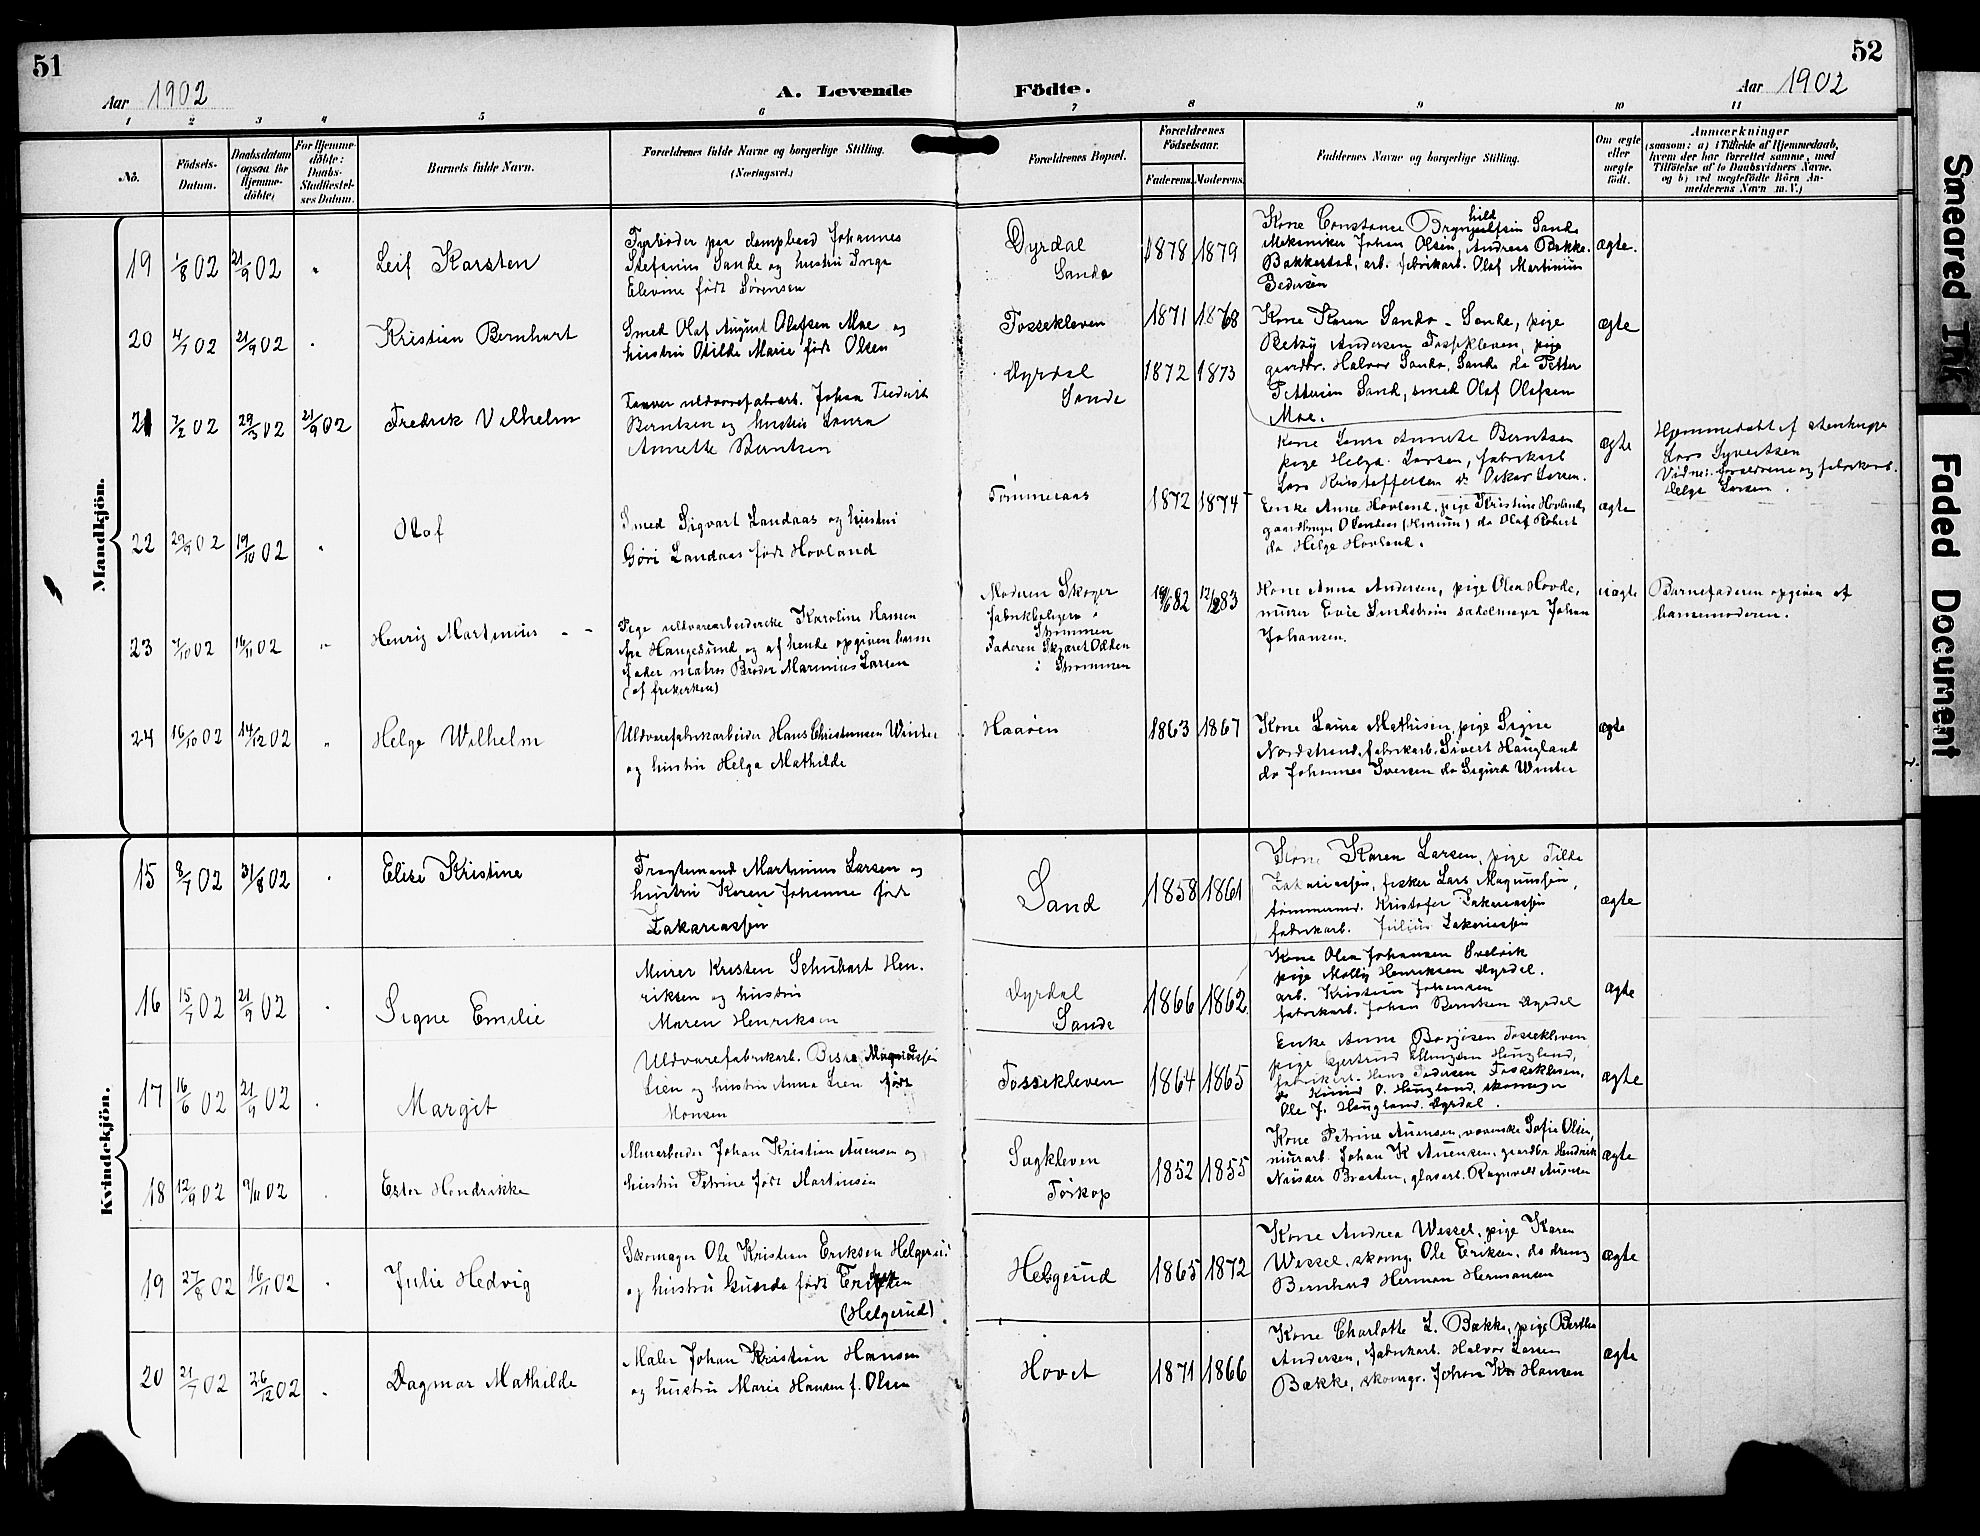 51
52
Aar 1902
A. Levende
Födte.
Aar 1902
1 2 3 4 5 6 7 8 9 10 11
No.
Födsels-
Datum.
Daabsdatum
(ogsaa for
Hjemme-
döbte)
For Hjemme-
döbte:
Daabs-
Stadfæstel-
ses Datum.
Barnets fulde Navn.
Forældrenes fulde Navne og borgerlige Stilling.
(Næringsvei.)
Forældrenes Bopæl.
Forældrenes
Födselsaar.
Faderens. Moderens.
Faddernes Navne og borgerlige Stilling.
Om ægte
eller
uægte
födt.
Anmærkninger
(saasom: a) i Tilfælde af Hjemmedaab,
hvem der har forrettet samme, med
Tilföielse af to Daabsvidners Navne.
og b) ved uægtefödte Börn An-
melderens Navn m. V.)
Mandkjön.
19 1/8 02 21/9 02 " Leif Karsten
Fyrböder paa dampbaad Johannes
Stefanius Sande og hustru Inga
Elevine født Sørensen
Dyrdal
Sande
1878 1879
Kone Constance Sande
Mekaniker Johan Olsen, Andreas Bakke
Bakkestad, arb. fabrikarb. Olaf Martinius
Pedersen
ægte.
20 4/7 02 21/9 02 . Kristian Bernhart
Smed Olaf August Olafsen Moe og
hustru Otilde Marie født Olsen
Fossekleven
1871 1868
Kone Karen Sande - Sande, pige
Betzy Andersen Fossekleven, pige
gaardbr. Halvor Sande, Sande do Petter
Pettersen Sand, smed Olaf Olafsen
Moe.
ægte
21 7/2 02 29/3 02 21/9 02 Fredrik Vilhelm
uldvarefabrarb. Johan Fredrik
Berntsen og hustru Laura
Annette Berntsen
Dyrdal
Sande
1872 1873
Kone Laura Annette Berntsen
pige Helga Larsen, fabrikarb
Lars Kristoffersen do Oskar Larsen.
ægte
Hjemmedøbt af
Lars Syvertsen
Vidner: forældrene og fabrikarb.
Helga Larsen.
22 29/9 02 19/10 02 " Olaf
Smed Sigvart Landaas og hustru
Gøri Landaas født Hovland
Tømmeraas
1872 1874
Enke Anne Hovland, pige Kristine Hovland,
gaardbruger do Olaf Robert
do Helge Hovland.
ægte
23 7/10 02 16/11 02 " Henrig Martinius
Pige uldvarearbeiderske Karoline Hansen
fra Haugesund, og af hende opgiven barne
fader matros Brødr Marinius Larsen
(af frikirken)
Moderen Skoger
fabrikboligen i
Strømmen
Faderen Skjæret Odden
i Strømmen
82 83
Kone Anna Andersen, pige Olea Hovde,
murer Evie Lindstrøm sadelmager Johan
Johansen.
uægte
Barnefaderen opgiven af
barnemoderen.
24 16/10 02 14/12 02 " Helge Wilhelm
Uldvarefabrikarbeider Hans Christensen Winter
og hustru Helga Mathilde
Haaøen
1863 1867
Kone Laura Mathisen, pige Signe
Nordstrand, fabrikarb. Sivert Haugland
do Johannes Iversen do Sigurd Winter
ægte
Kvindekjön.
15 8/7 02 31/8 02 . Elise Kristine
Fragtemand Martinius Larsen og
hustru Karen Johanne født
Zakariassen
Sand
1858 1861
Kone Karen Larsen, pige Tilda
Zakariassen, fisker Lars Magnussen,
tømmermd. Kristofer Zakariassen
fabrikarb. Julius Zakariassen
ægte
16 15/7 02 21/9 02 . Signe Emilie
Murer Kristen Schubart Hen-
riksen og hustru
Maren Henriksen
Dyrdal
Sande
1866 1862
Kone Olea Johansen Svelvik
pige Molly Henriksen Dyrdal.
arb. Kristian Johansen
fabrikarb. Johan Berntsen Dyrdal
ægte
17 16/6 02 21/9 02 . Margit
Uldvarefabrikarb.
Lien og hustru Anna Lien født
Monsen
Fossekleven
1864 1865
Enke Anne Fossekleven
pige Gjertrud Ellingsen Haugland,
fabrikarb. Hans Pedersen Fossekleven,
do Knud O. Haugland, skomager
Ole J. Haugland, Dyrdal.
ægte
18 12/9 02 9/11 02 . Ester Hendrikke
Murarbeider Johan Kristian Auensen og
hustru Petrine født Martinsen
Sagkleven
Tørkop
1852 1855
Kone Petrine Auensen, væverske Sofie Olsen,
murarb. Johan K Auensen, gaardbr Hendrik
Braaten, glasarb. Ragnvald Auensen
ægte
19 27/8 02 16/11 02 . Julie Hedvig
Skomager Ole Kristian Eriksen Helgerud
og hustru født
(Helgerud).
Helgerud
1865 1872
Kone Andrea Wessel, pige Karen
Wessel, skomg. Ole Eriksen, do dreng
Bernhard Herman Hermansen
ægte
20 21/7 02 26/12 02 . Dagmar Mathilde
Maler Johan Kristian Hansen
og hustru Marie Hansen f. Olsen
Hovet
1871 1866
Kone Charlotte L. Bakke, pige Berthe
Andersen, fabrikarb. Halvor Larsen
Bakke, skomgr. Johan Kr Hansen
ægte
Smeared Ink
Faded Document